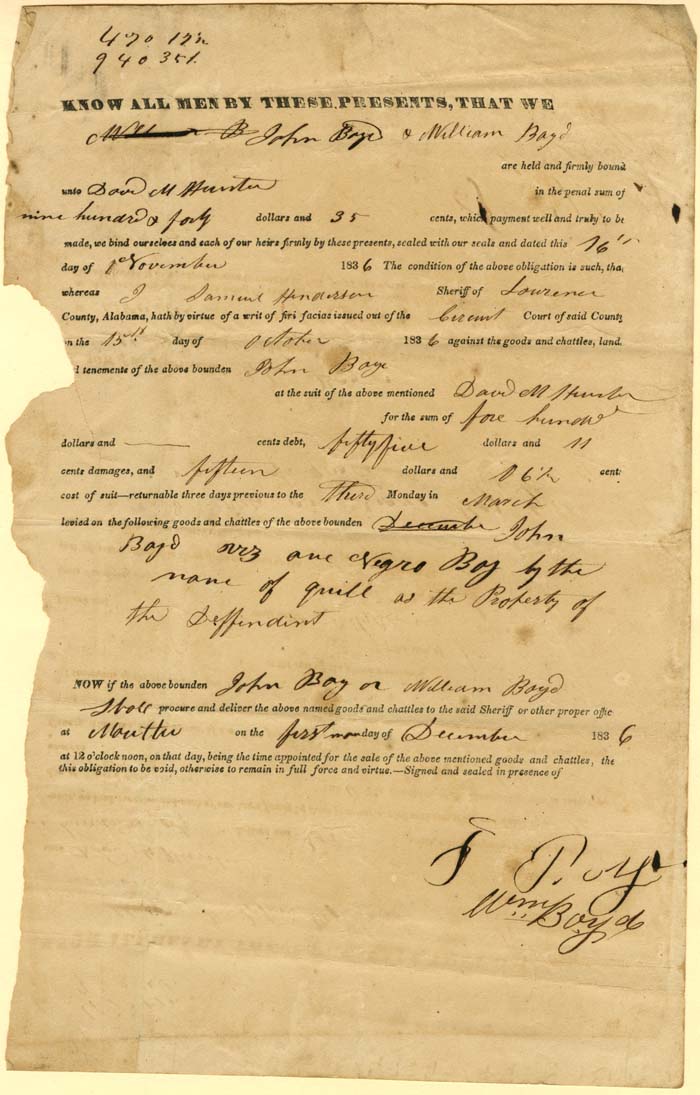 470 12½
940 35¢
KNOW ALL MEN BY THESE PRESENTS, THAT WE
John Boyd & William Boyd
are held and firmly bound
unto David M Hunter in the penal sum of
nine hundred & forty dollars and 35 cents, which payment well and truly to be
made, we bind ourselves and each of our heirs firmly by these presents, sealed with our seals and dated this 16th
day of November 1836 The condition of the above obligation is such, tha
whereas I Samuel Henderson Sheriff of Lawrence
County, Alabama, hath by virtue of a writ of firi facias issued out of the Circuit Court of said County
on the 15th day of October 1836 against the goods and chattles, land
d tenements of the above bounden John Boyd
at the suit of the above mentioned David M Hunter
for the sum of four hundred
dollars and — cents debt, fifty five dollars and 11
cents damages, and fifteen dollars and 06½ cent
cost of suit—returnable three days previous to the third Monday in March
levied on the following goods and chattles of the above bounden December John
Boyd one Negro Boy by the
name of quill as the Property of
the Deffendint
NOW if the above bounden John Boy or William Boyd
Shall procure and deliver the above named goods and chattles to the said Sheriff or other proper offic
at Moulton on the first monday of December 1836
at 12 o'clock noon, on that day, being the time appointed for the sale of the above mentioned goods and chattles, the
this obligation to be void, otherwise to remain in full force and virtue.—Signed and sealed in presence of
Wm Boyd